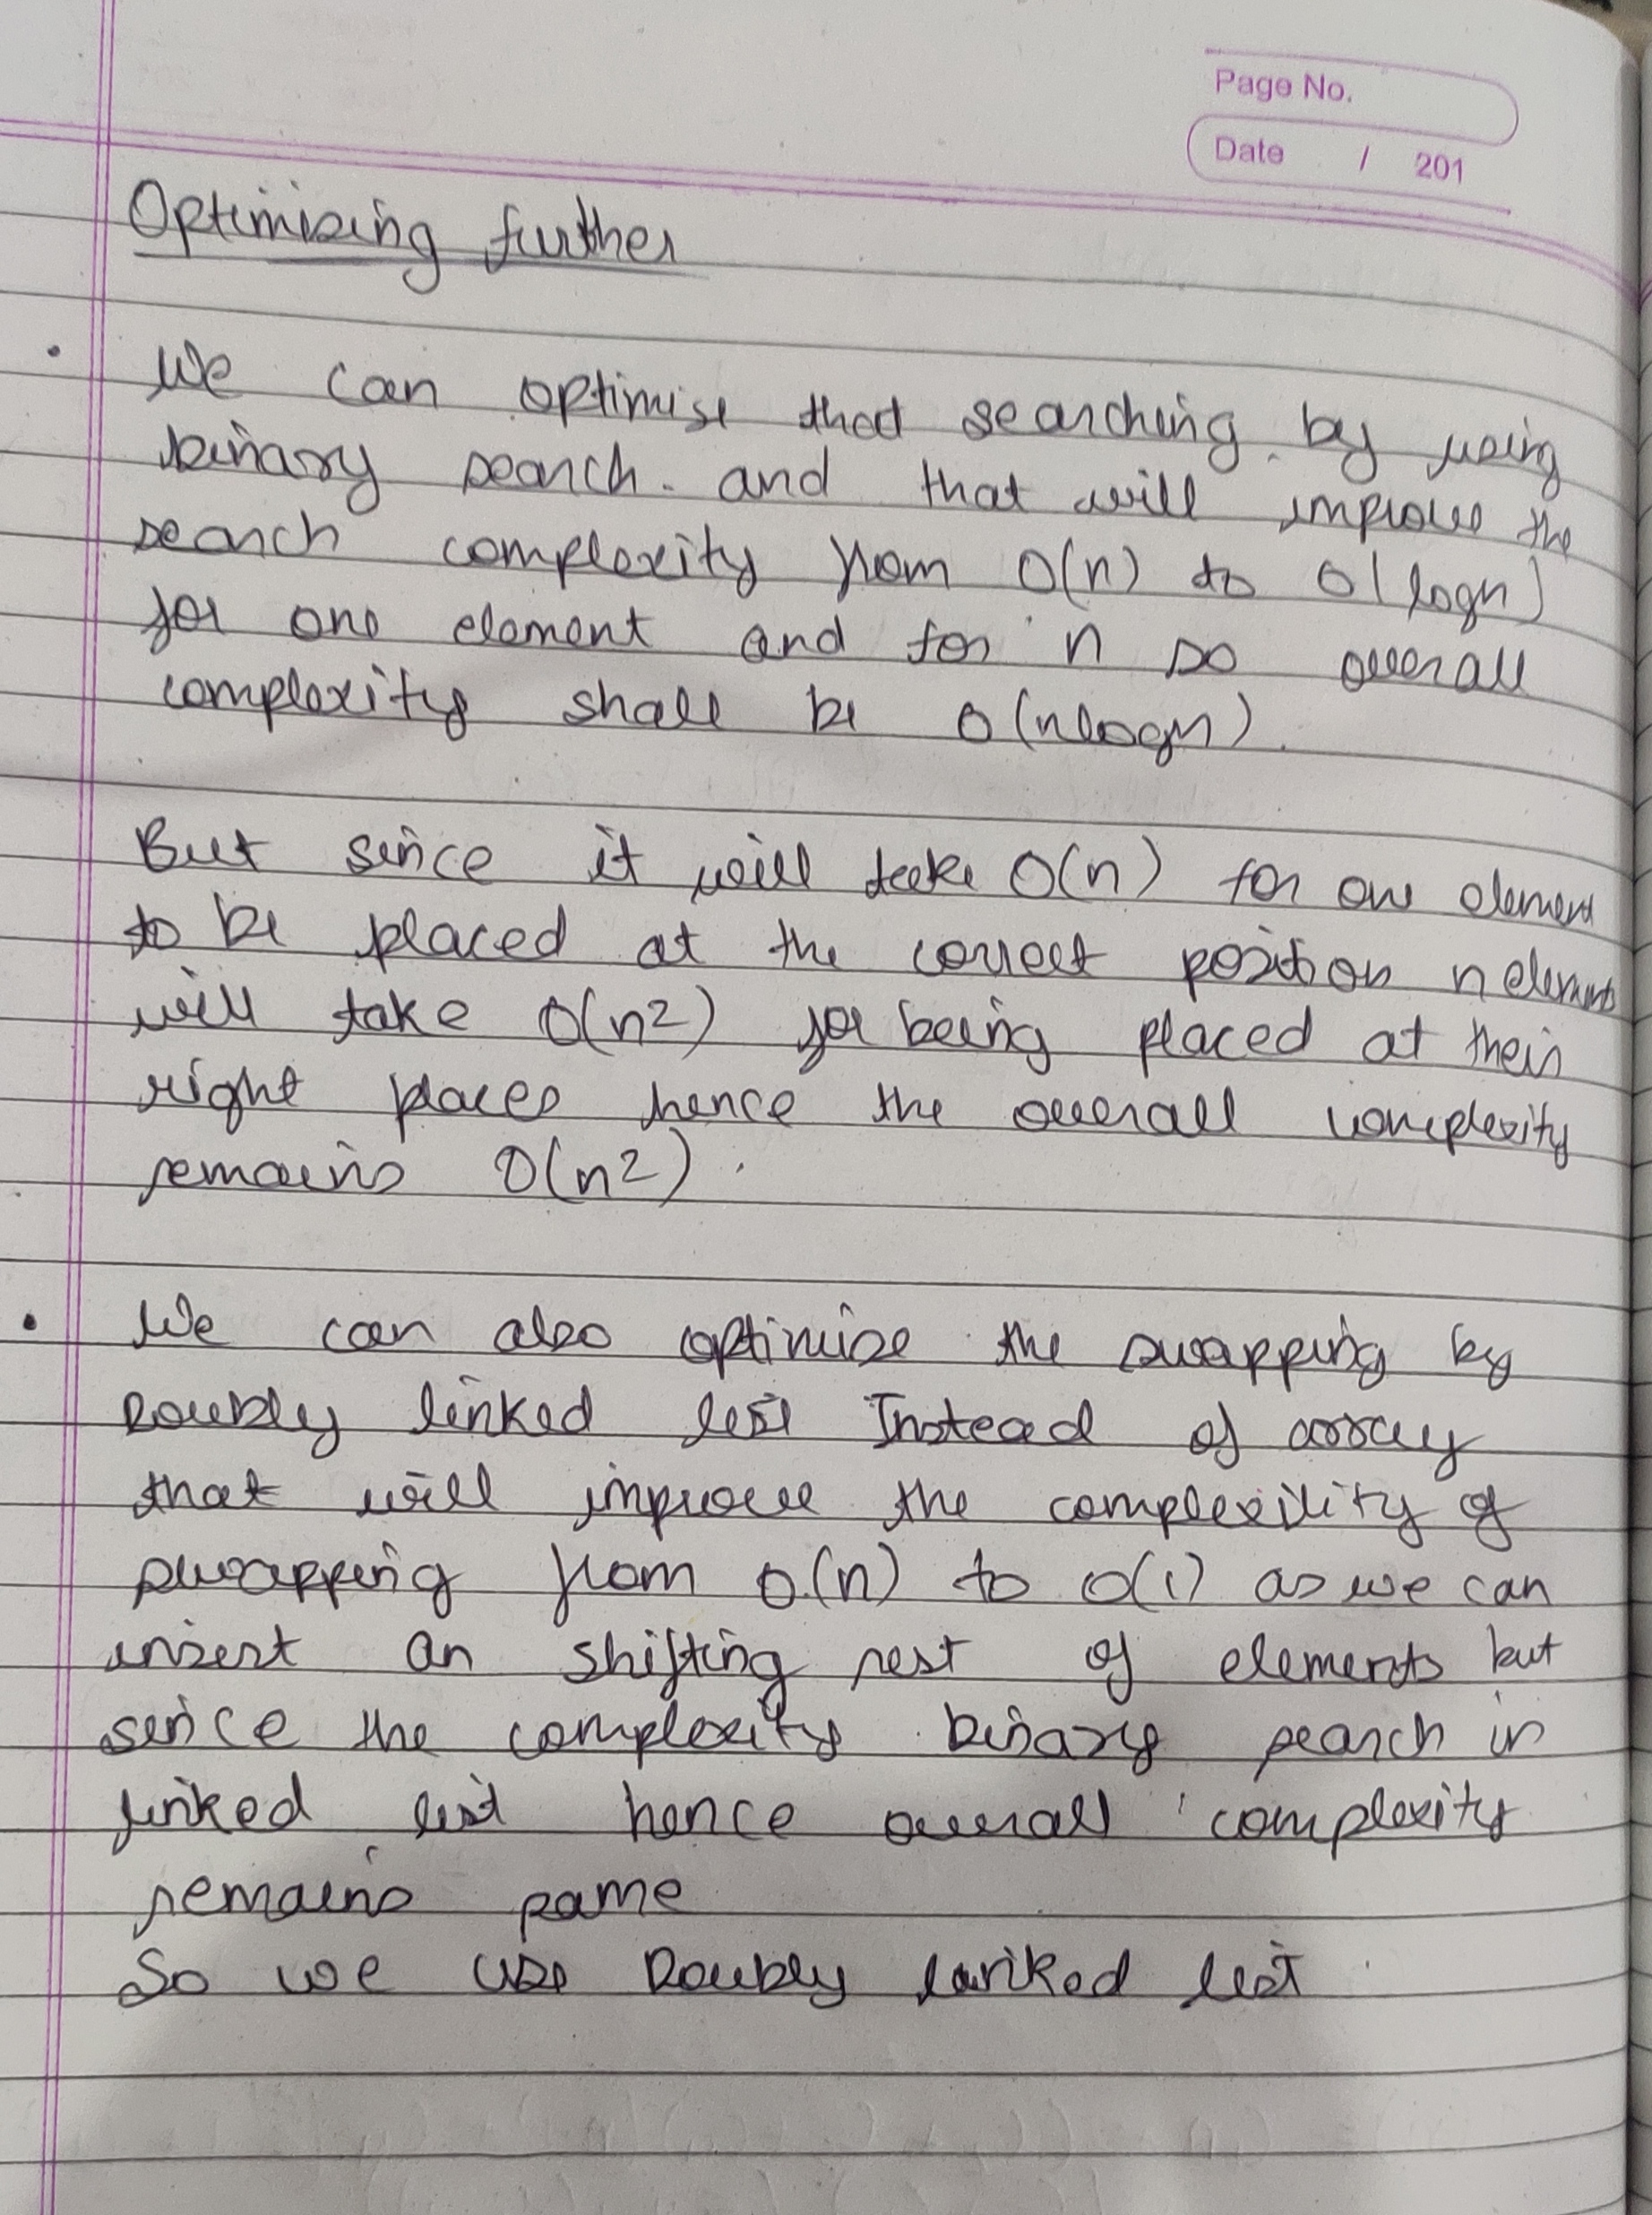 Page No.
Date / 201
Optimising further
• We can optimise that searching by using
binary search. and that will improve the
search complexity from O(n) to O(logn)
for one element and for n so overall
complexity shall be O(nlogn).
But since it will take O(n) for one element
to be placed at the correct position n elements
will take O(n2) for being placed at their
right places hence the overall complexity
remains O(n2).
• We can also optimise the swapping by
Doubly linked list Instead of array
that will improve the complexility of
swapping from O(n) to O(1) as we can
insert an shifting rest of elements but
since the complexity binary search in
linked list hence overall complexity
remains same
So we use Doubly linked list